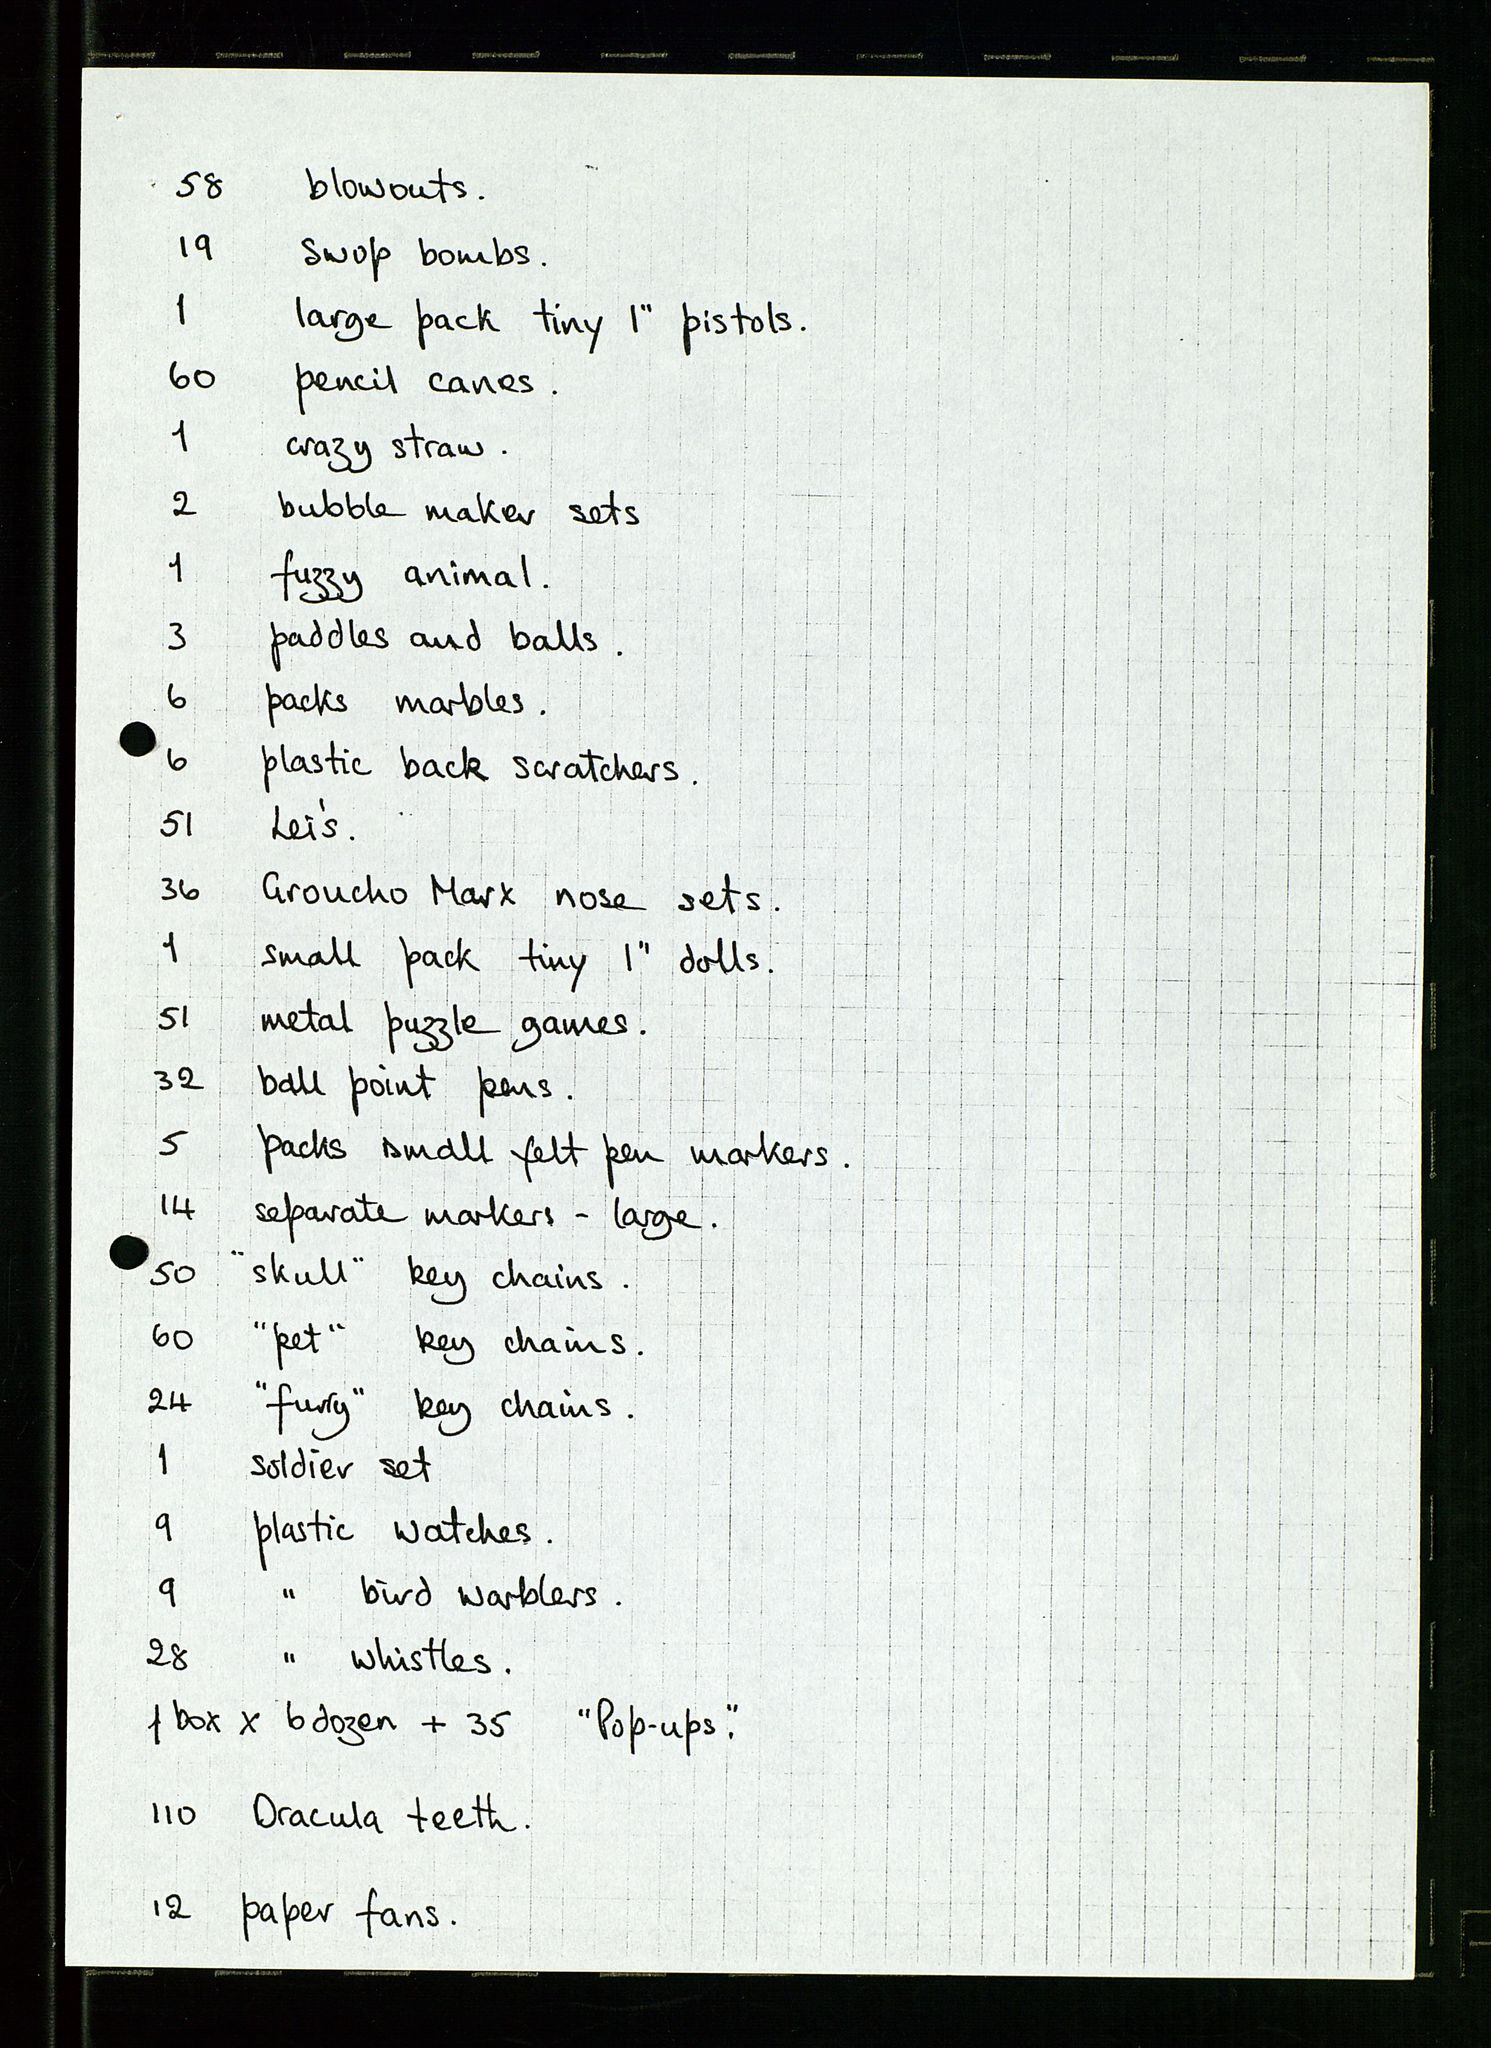 58 blowouts.
19 Swop bombs.
1 large pack tiny 1" pistols.
60 pencil canes.
1 crazy straw.
2 bubble maker sets
1 fuzzy animal.
3 paddles and balls.
6 packs marbles.
6 plastic back scratchers.
51 Lei's.
36 Groucho Marx nose sets.
1 small pack tiny 1" dolls.
51 metal puzzle games.
32 ball point pens.
5 packs small felt pen markers.
14 separate markers - large.
50 "skull" key chains.
60 "pet" key chains.
24 "furry" key chains.
1 soldier set
9 plastic watches.
9 " bird warblers.
28 " whistles.
1 box x 6 dozen + 35 "Pop-ups".
110 Dracula teeth.
12 paper fans.